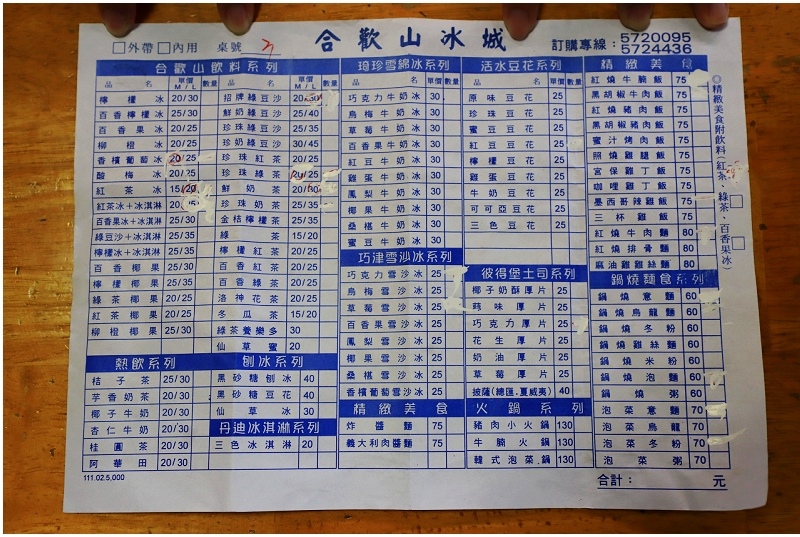 □外帶 □內用 桌號 7 合歡山冰城 訂購專線：5720095
5724436
合歡山飲料系列
品 名 單價 M/L 數量 品 名 單價 M/L 數量
檸檬冰 20/30
百香檸檬冰 25/30
百香果冰 20/25
柳橙冰 20/25
香檳葡萄冰 20/25
酸梅冰 20/25
紅茶冰 15/20
紅茶冰+冰淇淋 20/25
百香果冰+冰淇淋 25/30
綠豆沙+冰淇淋 25/35
檸檬冰+冰淇淋 25/35
百香椰果 25/30
檸檬椰果 25/35
綠茶椰果 20/25
紅茶椰果 20/25
柳橙椰果 25/30
招牌綠豆沙
鮮奶綠豆沙 25/40
珍珠綠豆沙 25/35
珍奶綠豆沙 30/45
珍珠紅茶 20/25
珍珠綠茶
鮮奶茶
珍珠奶茶 25/35
金桔檸檬茶 25/35
綠茶 15/20
檸檬紅茶 20/25
百香紅茶 20/25
百香綠茶 20/25
洛神花茶 20/25
冬瓜茶 15/20
綠茶養樂多 30
仙草蜜 20
熱飲系列
桔子茶 25/30
芋香奶茶 20/30
椰子牛奶 20/30
杏仁牛奶 20/30
桂圓茶 20/30
阿華田 20/30
刨冰系列
黑砂糖刨冰 40
黑砂糖豆花 40
仙草冰 30
丹迪冰淇淋系列
三色冰淇淋 20
玲珍雪綿冰系列
品 名 單價 數量
巧克力牛奶冰 30
烏梅牛奶冰 30
草莓牛奶冰 30
百香果牛奶冰 30
紅豆牛奶冰 30
雞蛋牛奶冰 30
鳳梨牛奶冰 30
椰果牛奶冰 30
桑椹牛奶冰 30
蜜豆牛奶冰 30
巧津雪沙冰系列
巧克力雪沙冰 25
烏梅雪沙冰 25
草莓雪沙冰 25
百香果雪沙冰 25
鳳梨雪沙冰 25
椰果雪沙冰 25
桑椹雪沙冰 25
香檳葡萄雪沙冰 25
精緻美食
炸醬麵 75
義大利肉醬麵 75
活水豆花系列
品 名 單價 數量
原味豆花 25
珍珠豆花 25
蜜豆豆花 25
紅豆豆花 25
檸檬豆花 25
雞蛋豆花 25
牛奶豆花 25
可可亞豆花 25
三色豆花 25
彼得堡土司系列
椰子奶酥厚片 25
蒜味厚片 25
巧克力厚片 25
花生厚片 25
奶油厚片 25
草莓厚片 25
披薩(總匯.夏威夷) 40
火鍋系列
豬肉小火鍋 130
牛腩火鍋 130
韓式泡菜鍋 130
精緻美食
紅燒牛腩飯 75
黑胡椒牛肉飯 75
紅燒豬肉飯 75
黑胡椒豬肉飯 75
蜜汁烤肉飯 75
照燒雞腿飯 75
宮保雞丁飯 75
咖哩雞丁飯 75
墨西哥辣雞飯 75
三杯雞飯 75
紅燒牛肉麵 80
紅燒排骨麵 80
麻油雞雞絲麵 80
鍋燒麵食系列
鍋燒意麵 60
鍋燒烏龍麵 60
鍋燒冬粉 60
鍋燒雞絲麵 60
鍋燒米粉 60
鍋燒泡麵 60
鍋燒粥 60
泡菜意麵 70
泡菜烏龍 70
泡菜冬粉 70
泡菜粥 70
◎精緻美食附飲料(紅茶、綠茶、百香果冰)
合計： 元
111.02.5,000